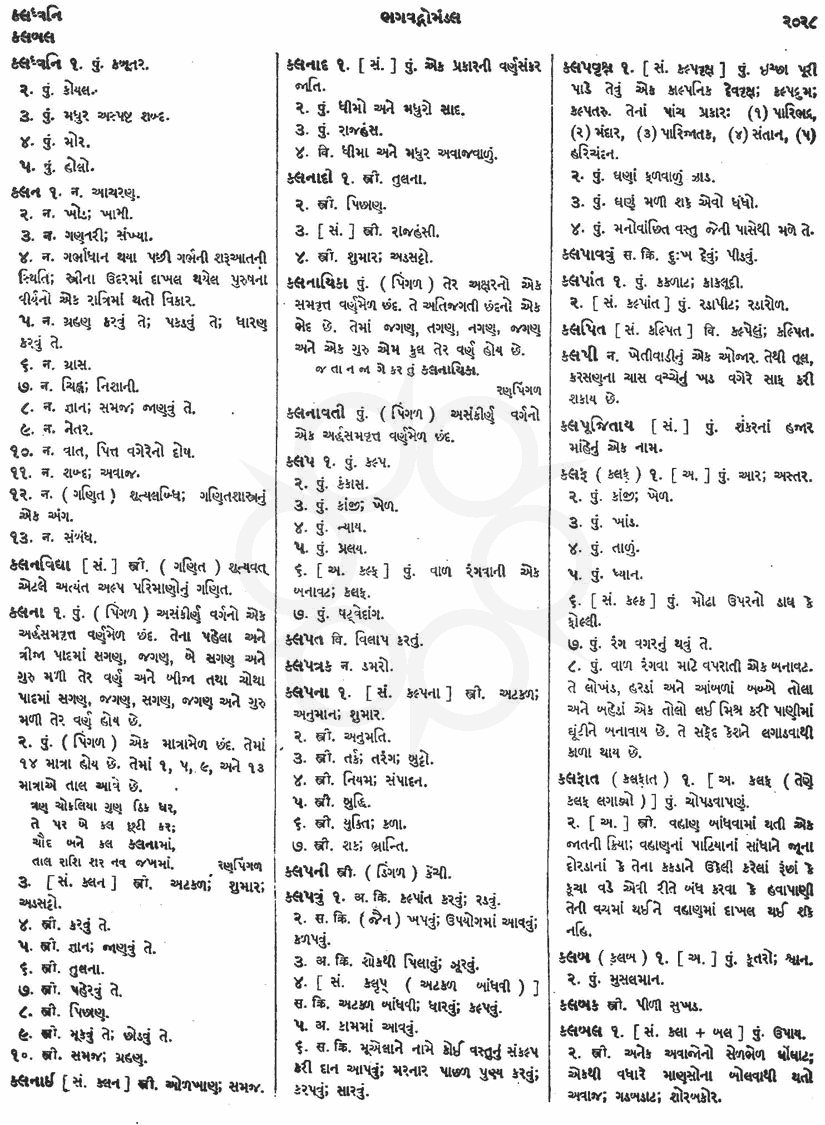 કલધ્વનિ
ભગવદ્ગોમંડલ
૨૦૨૮
કલબલ
કલધ્વનિ ૧. પું. કબૂતર.
૨. પું. કોયલ.
૩. પું. મધુર અસ્પષ્ટ શબ્દ.
૪. પું. મોર.
૫. પું. હોલો.
કલન ૧. ન. આચરણ.
૨. ન. ખોડ; ખામી.
૩. ન. ગણતરી; સંખ્યા.
૪. ન. ગર્ભાધાન થયા પછી ગર્ભની શરૂઆતની
સ્થિતિ; સ્ત્રીના ઉદરમાં દાખલ થયેલ પુરુષના
વીર્યનો એક રાત્રિમાં થતો વિકાર.
૫. ન. ગ્રહણ કરવું તે; પકડવું તે; ધારણ
કરવું તે.
૬. ન. ગ્રાસ.
૭. ન. ચિહ્ન; નિશાની.
૮. ન. જ્ઞાન; સમજ; જાણવું તે.
૯. ન. નેતર.
૧૦. ન. વાત, પિત્ત વગેરેનો દોષ.
૧૧. ન. શબ્દ; અવાજ.
૧૨. ન. ( ગણિત ) શત્યલબ્ધિ; ગણિતશાસ્ત્રનું
એક અંગ.
૧૩. ન. સંબંધ.
કલનવિદ્યા [ સં. ] સ્ત્રી. ( ગણિત ) શત્યવત્
એટલે અત્યંત અલ્પ પરિમાણોનું ગણિત.
કલના ૧. પું. ( પિંગળ ) અસંકીર્ણ વર્ગનો એક
અર્દ્ધસમવૃત્ત વર્ણમેળ છંદ. તેના પહેલા અને
ત્રીજા પાદમાં સગણ, જગણ, બે સગણ અને
ગુરુ મળી તેર વર્ણ અને બીજા તથા ચોથા
પાદમાં સગણ, જગણ, સગણ, જગણ અને ગુરુ
મળી તેર વર્ણ હોય છે.
૨. પું. ( પિંગળ ) એક માત્રામેળ છંદ. તેમાં
૧૪ માત્રા હોય છે. તેમાં ૧, ૫, ૯, અને ૧૩
માત્રાએ તાલ આવે છે.
ત્રણ ચોકલિયા ગુણ ઠિક ધર,
તે પર બે કલ છૂટી કર;
ચૌદ બને કલ કલનામાં,
તાલ રાશિ શર નવ જખમાં. રણપિંગળ
૩. [ સં. કલન ] સ્ત્રી. અટકળ; શુમાર;
અડસટ્ટો.
૪. સ્ત્રી. કરવું તે.
૫. સ્ત્રી. જ્ઞાન; જાણવું તે.
૬. સ્ત્રી. તુલના.
૭. સ્ત્રી. પહેરવું તે.
૮. સ્ત્રી. પિછાણ.
૯. સ્ત્રી. મૂકવું તે; છોડવું તે.
૧૦. સ્ત્રી. સમજ; ગ્રહણ.
કલનાઈ [ સં. કલન ] સ્ત્રી. ઓળખાણ; સમજ.
કલનાદ ૧. [ સં. ] પું. એક પ્રકારની વર્ણસંકર
જાતિ.
૨. પું. ધીમો અને મધુરો સાદ.
૩. પું. રાજહંસ.
૪. વિ. ધીમા અને મધુર અવાજવાળું.
કલનાદી ૧. સ્ત્રી. તુલના.
૨. સ્ત્રી. પિછાણ.
૩. [ સં. ] સ્ત્રી. રાજહંસી.
૪. સ્ત્રી. શુમાર; અડસટ્ટો.
કલનાયિકા પું. ( પિંગળ ) તેર અક્ષરનો એક
સમવૃત્ત વર્ણમેળ છંદ. તે અતિજગતી છંદનો એક
ભેદ છે. તેમાં જગણ, તગણ, નગણ, જગણ
અને એક ગુરુ એમ કુલ તેર વર્ણ હોય છે.
જ તા ન જા ગે કર તું કલનાયિકા.
રણપિંગળ
કલનાવતી પું. ( પિંગળ ) અસંકીર્ણ વર્ગનો
એક અર્દ્ધસમવૃત્ત વર્ણમેળ છંદ.
કલપ ૧. પું. કલ્પ.
૨. પું. કંકાસ.
૩. પું. કાંજી; ખેળ.
૪. પું. ન્યાય.
૫. પું. પ્રલય.
૬. [ અ. કલ્ફ ] પું. વાળ રંગવાની એક
બનાવટ; કલફ.
૭. પું. ષટ્વેદાંગ.
કલપત વિ. વિલાપ કરતું.
કલપત્રક ન. ડમરો.
કલપના ૧. [ સં. કલ્પના ] સ્ત્રી. અટકળ;
અનુમાન; શુમાર.
૨. સ્ત્રી. અનુમતિ.
૩. સ્ત્રી. તર્ક; તરંગ; બુટ્ટો.
૪. સ્ત્રી. નિયમ; સંપાદન.
૫. સ્ત્રી. બુદ્ધિ.
૬. સ્ત્રી. યુક્તિ; કળા.
૭. સ્ત્રી. શક; ભ્રાન્તિ.
કલપની સ્ત્રી. ( ડિંગળ ) કેંચી.
કલપવું ૧. અ. ક્રિ. કલ્પાંત કરવું; રડવું.
૨. સ. ક્રિ. ( જૈન ) ખપવું; ઉપયોગમાં આવવું;
કળપવું.
૩. અ. ક્રિ. શોકથી પિલાવું; ઝૂરવું.
૪. [ સં. કલૃપ્ ( અટકળ બાંધવી ) ]
સ. ક્રિ. અટકળ બાંધવી; ધારવું; કલ્પવું.
૫. અ. કામમાં આવવું.
૬. સ. ક્રિ. મૂએલાને નામે કોઈ વસ્તુનું સંકલ્પ
કરી દાન આપવું; મરનાર પાછળ પુણ્ય કરવું;
કરપવું; સારવું.
કલપવૃક્ષ ૧. [ સં. કલ્પવૃક્ષ ] પું. ઇચ્છા પૂરી
પાડે તેવું એક કાલ્પનિક દેવવૃક્ષ; કલ્પદ્રુમ;
કલ્પતરુ. તેનાં પાંચ પ્રકાર: (૧) પારિભદ્ર,
(૨) મંદાર, (૩) પારિજાતક, (૪) સંતાન, (૫)
હરિચંદન.
૨. પું. ઘણાં ફળવાળું ઝાડ.
૩. પું. ઘણું મળી શકે એવો ધંધો.
૪. પું. મનોવાંછિત વસ્તુ જેની પાસેથી મળે તે.
કલપાવવું સ. ક્રિ. દુ:ખ દેવું; પીડવું.
કલપાંત ૧. પું. કકળાટ; કાકલૂદી.
૨. [ સં. કલ્પાંત ] પું. રડાપીટ; રડારોળ.
કલપિત [ સં. કલ્પિત ] વિ. કલ્પેલું; કલ્પિત.
કલપી ન. ખેતીવાડીનું એક ઓજાર. તેથી તૂલ,
કરસણના ચાસ વચ્ચેનું ખડ વગેરે સાફ કરી
શકાય છે.
કલપૂજિતાય [ સં. ] પું. શંકરનાં હજાર
માંહેનું એક નામ.
કલફ ( કલફ઼ ) ૧. [ અ. ] પું. આર; અસ્તર.
૨. પું. કાંજી; ખેળ.
૩. પું. ખાંડ.
૪. પું. તાળું.
૫. પું. ધ્યાન.
૬. [ સં. કલ્ક ] પું. મોઢા ઉપરનો ડાઘ કે
ફોલ્લી.
૭. પું. રંગ વગરનું થવું તે.
૮. પું. વાળ રંગવા માટે વપરાતી એક બનાવટ.
તે લોખંડ, હરડાં અને આંબળાં બબ્બે તોલા
અને બહેડાં એક તોલો લઈ મિશ્ર કરી પાણીમાં
ઘૂંટીને બનાવાય છે. તે સફેદ કેશને લગાડવાથી
કાળા થાય છે.
કલફાત ( કલફ઼ાત ) ૧. [ અ. કલફ ( તેણે
કલફ લગાડ્યો ) ] પું. ચોપડવાપણું.
૨. [ અ. ] સ્ત્રી. વહાણ બાંધવામાં થતી એક
જાતની ક્રિયા; વહાણનાં પાટિયાનાં સાંધાને જૂના
દોરડાનાં કે તેના કકડાને ઉકેલી કરેલાં રૂંછાં કે
કૂચા વડે એવી રીતે બંધ કરવા કે હવાપાણી
તેની વચમાં થઈને વહાણમાં દાખલ થઈ શકે
નહિ.
કલબ ( ક઼લબ ) ૧. [ અ. ] પું. કૂતરો; શ્વાન.
૨. પું. મુસલમાન.
કલબક સ્ત્રી. પીળી સુખડ.
કલબલ ૧. [ સં. કલા + બલ ] પું. ઉપાય.
૨. સ્ત્રી. અનેક અવાજોનો સેળભેળ ઘોંઘાટ;
એકથી વધારે માણસોના બોલવાથી થતો
અવાજ; ગડબડાટ; શોરબકોર.